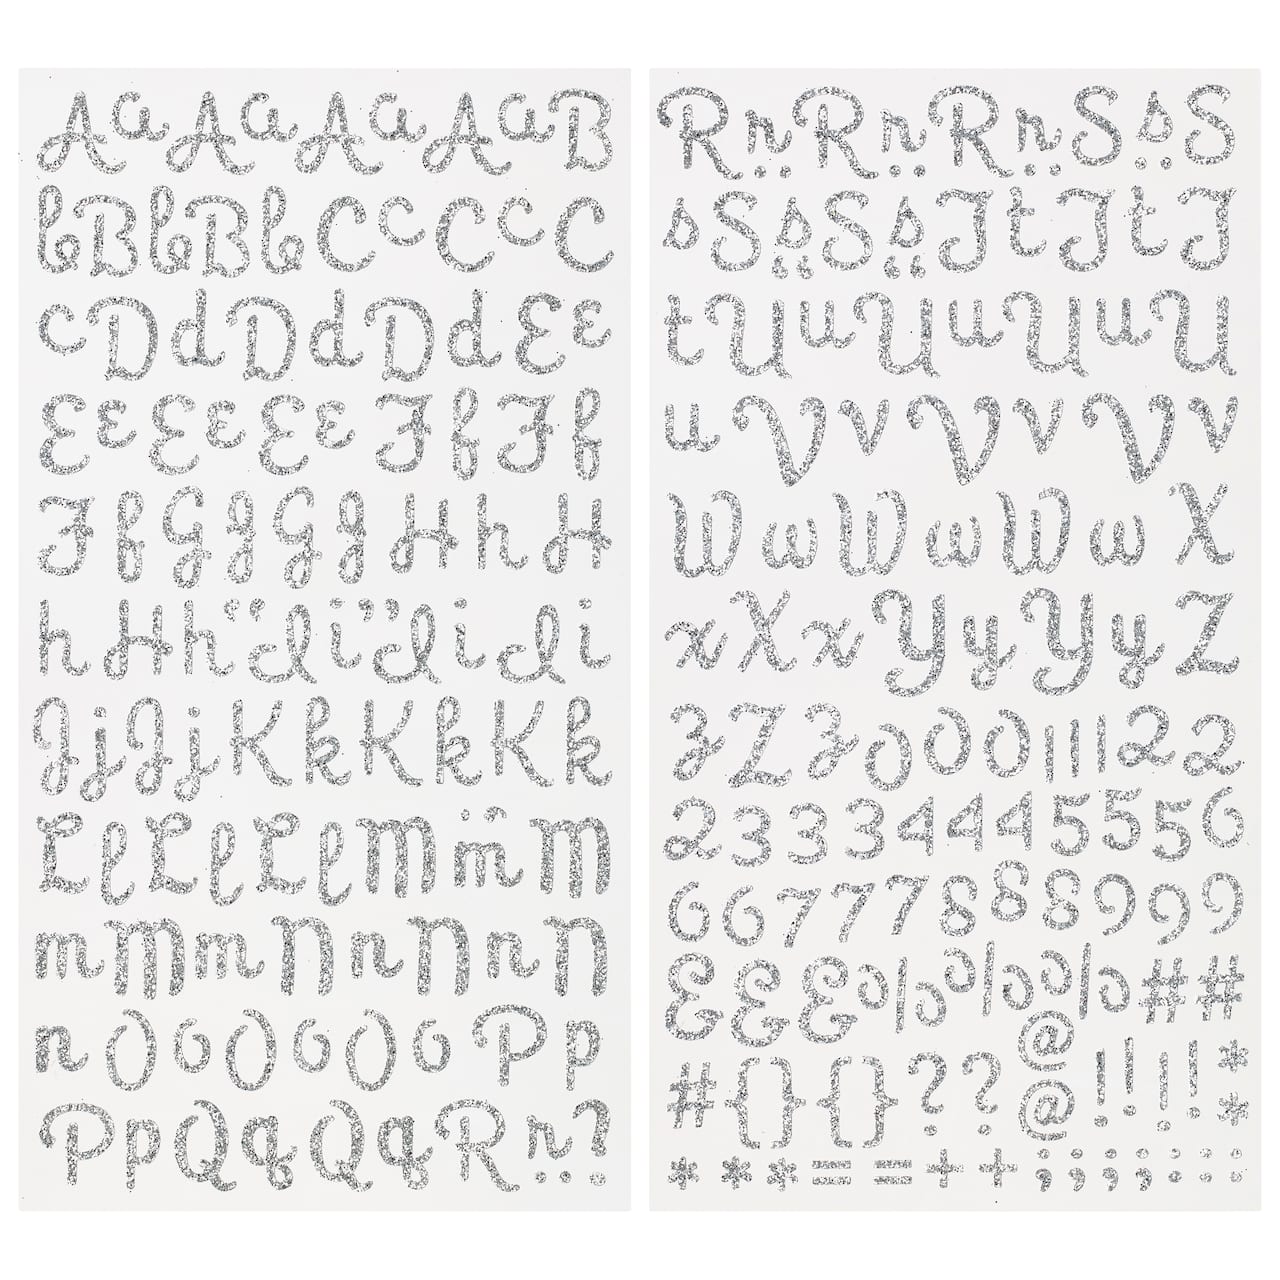 A a A a A a A a B
b B b B b C c C c C
c D d D d D d E e
E e E e E e F f F f
F f G g G g H h H
h H h “ I i ” I i I i
J j J j K k K k K k
L l L l L l M m M
m M m N n N n N
n O o O o O o P p
P p Q q Q q R r ?
R r R r R r S s S
s S s S s T t T t T
t U u U u U u U
u V v V v V v
W w W w W w X
x X x Y y Y y Z
z Z z 0 0 0 1 1 1 2 2
2 3 3 3 4 4 4 5 5 5 6
6 6 7 7 7 8 8 8 9 9 9
& & & % % % # #
# { } { } ? ? @ @ ! ! ! ! * *
* * * = = + + ; ; ; ; : : :